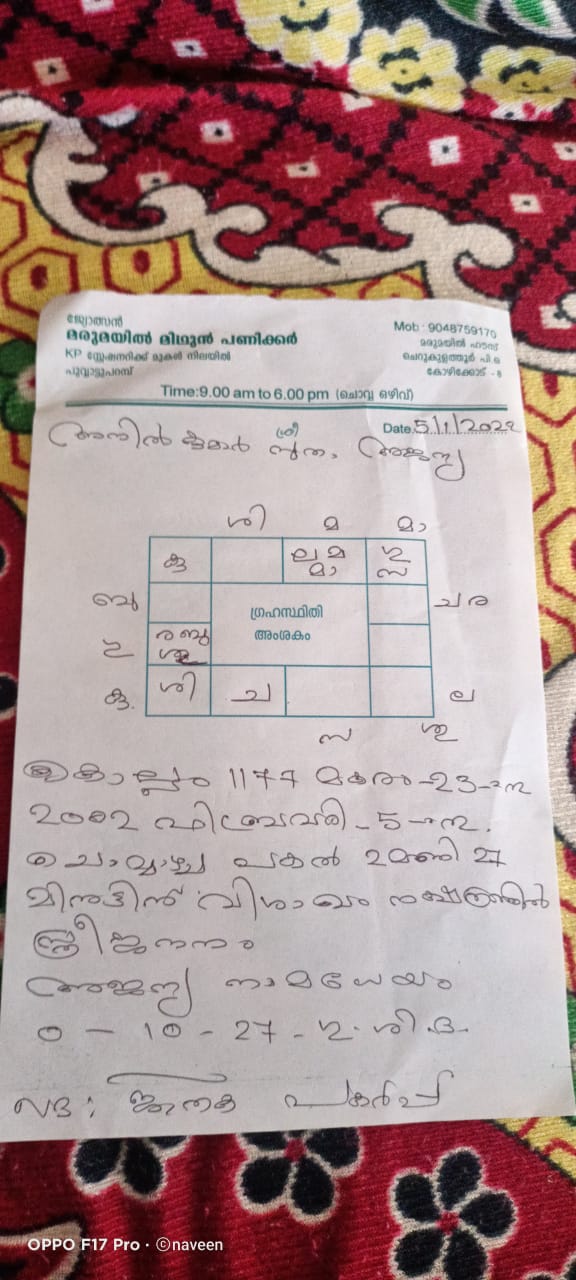 ജ്യോത്സ്യൻ
മരുമയിൽ മിഥുൻ പണിക്കർ
KP സ്റ്റേഷനറിക്ക് മുകൾ നിലയിൽ
പൂവ്വാട്ടുപറമ്പ്
Mob : 9048759170
മരുമയിൽ ഹൗസ്
ചെറുകുളത്തൂർ പി.ഒ
കോഴിക്കോട് - 8
Time:9.00 am to 6.00 pm (ചൊവ്വ ഒഴിവ്)
Date 5/1/2022
അനിൽ കുമാർ ശ്രീ സുത, അജന്യ
ശി മ മാ
കു ല മ ഗു
മാ സ
ബു ചര
ഗ്രഹസ്ഥിതി
അംശകം
ര ബു
ഗു
ശു
കു ശി ച ല
സ ശു
കൊല്ലം 1177 മകരം-23-ന
2002 ഫിബ്രവരി - 5-ന.
ചൊവ്വാഴ്ച പകൽ 2മണി 27
മിനുട്ടിന് വിശാഖം നക്ഷത്രത്തിൽ
സ്ത്രീജനനം
അജന്യ നാമധേയം
0 - 10 - 27 - ഗു. ശി. ദ.
ജാതക പകർപ്പ്
OPPO F17 Pro · ©naveen